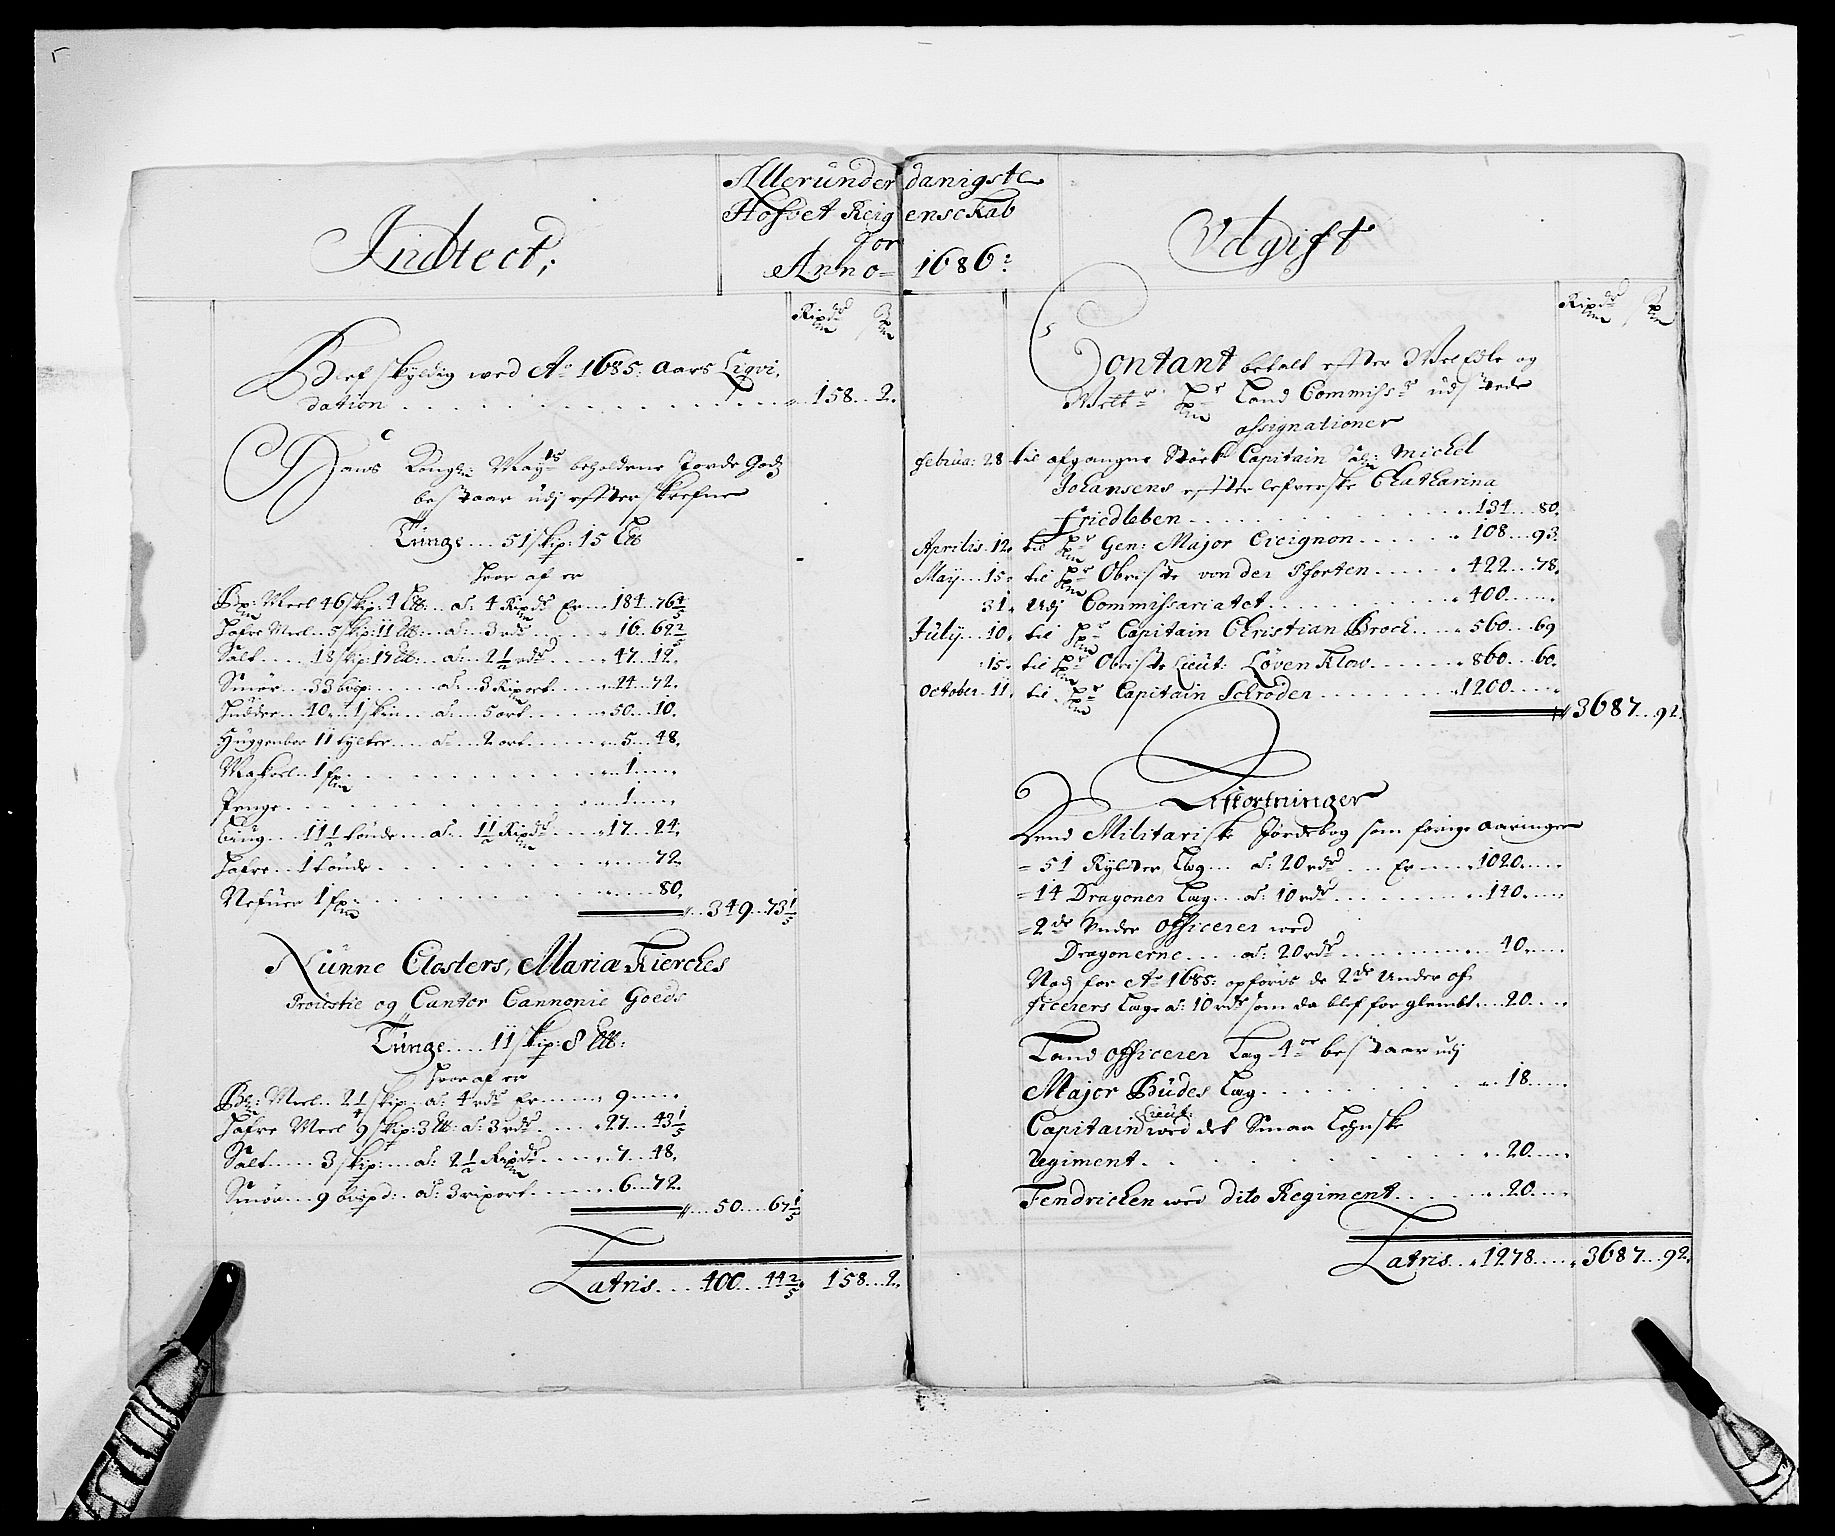 Allerunderdanigste
Hofvet Reigenschab
for
Anno 1686:
Indtect;
Ripdr ß
Blef skyldig wed Ao 1685: aars Liqvi,
dation . . . 158 .. 2.
Hans Kongl: Mayts beholdene Jorde Gods
bestaar udj effterskrefne
Tünge .... 51 skip: 15 Lb
Hvor af er
Bg: Meel 46 skip: 1 Lb .. a: 4 Ripdr Er ... 184 .. 76 4/5
Hafre Meel .. 5 skip: 11 Lb: .. a: .. 3 rdr .... 16 .. 62 2/5
Salt ..... 18 skip: 17 Lb: .. a: .. 2 1/2 rdr .... 47 .. 12.
Smør ... 33 bvsp: ..... a: .. 3 Riport .... 24 .. 72.
Hudder ... 40 .. 1 skin .. a: ... 5 ort .... 50 .. 10.
Huggenber 11 tylter .... a: ... 2 ort .... 5 ... 48.
Makrel .. 1 fp . . . 1 ....
Penge . . . 1 ....
Biug .... 11 1/2 tønde ... a: .. 1 1/2 Ripdr .... 17 ... 24.
Hafre .. 1 tønde . . . 72.
Nefuer 1 fp . . . 80.
349 .. 73 1/5
Nünne Closters, Mariæ Kierches
Proustie og Cantor Cannonie Goeds
Tünge .... 11 skip: 8 Lb:
Hvor af er
Bg: Meel .. 2 1/4 skip .. a: 4 rdr Er .... 9 ....
Hafre Meel 9 skip: 3 Lb: a: 3 rdr .... 27 ... 43 1/5
Salt ..... 3 skip: ... a: 2 1/2 Ripdr .... 7 .. 48.
Smør ... 9 bvspd: .. a: 3 riport .... 6 .. 72.
50 ... 67 1/5
Latris .... 400 .. 44 2/5 158 .. 2.
Udgift
Ripdr ß
Contant betalt effter Wel Edle og
Welbr Hr Land Commissrs udstede
assignationer
Februa: 28 til afgangne Capitain Sal: Michel
Johansens effterlefverske Chatharina
Friedleben . . . 134 .. 80.
Aprilis .. 12. til Hr Gen: Major Cicignon .... 108 ... 93.
Maÿ .... 15. til Hr Obriste von der Pforten .... 422 ... 78.
31. Udj Commissariatet .... 400 ....
Julÿ ... 10. til Hr Capitain Christian Brock .... 560 ... 69
15. til Hr Obriste Lieut: Løvenklow .... 860 ... 60.
October .. 11. til Hr Capitain Schrøder .... 1200 ....
3687 .. 92.
Afkortninger
Dend Militariske Jordebog som forige aaringer
51 Rytter Læg ... a: 20 rdr ... Er ... 1020 ....
14 Dragoner Læg ... a: 10 rdr .... 140 ....
2de Under Officerer wed
Dragonerne .... a: 20 rdr .... 40 ....
Nock for Ao 1685: opføris de 2de Under of,
ficerers Læge a: 10 rdr som da blef forglembt .. 20 ....
Land Officerer Læg 4re bestaar udj
Major Büdes Læg . . . 18 ....
Capitain Lieut: wed det Smaa Lehnske
Regiment . . . 20 ....
Fendrichen wed dito Regiment .... 20 ....
Latris .. 1278 .... 3687 .. 92.